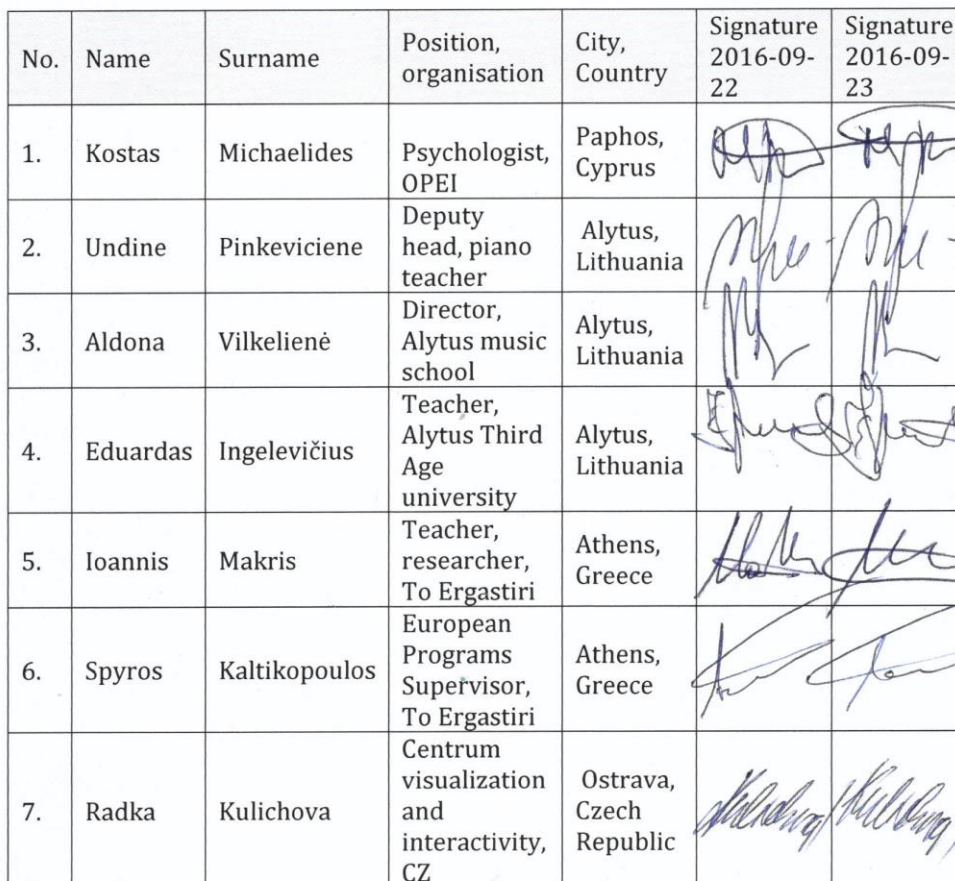 No. Name Surname Position, organisation City, Country Signature 2016-09-22 Signature 2016-09-23
1. Kostas Michaelides Psychologist, OPEI Paphos, Cyprus
2. Undine Pinkeviciene Deputy head, piano teacher Alytus, Lithuania
3. Aldona Vilkelienė Director, Alytus music school Alytus, Lithuania
4. Eduardas Ingelevičius Teacher, Alytus Third Age university Alytus, Lithuania
5. Ioannis Makris Teacher, researcher, To Ergastiri Athens, Greece
6. Spyros Kaltikopoulos European Programs Supervisor, To Ergastiri Athens, Greece
7. Radka Kulichova Centrum visualization and interactivity, CZ Ostrava, Czech Republic